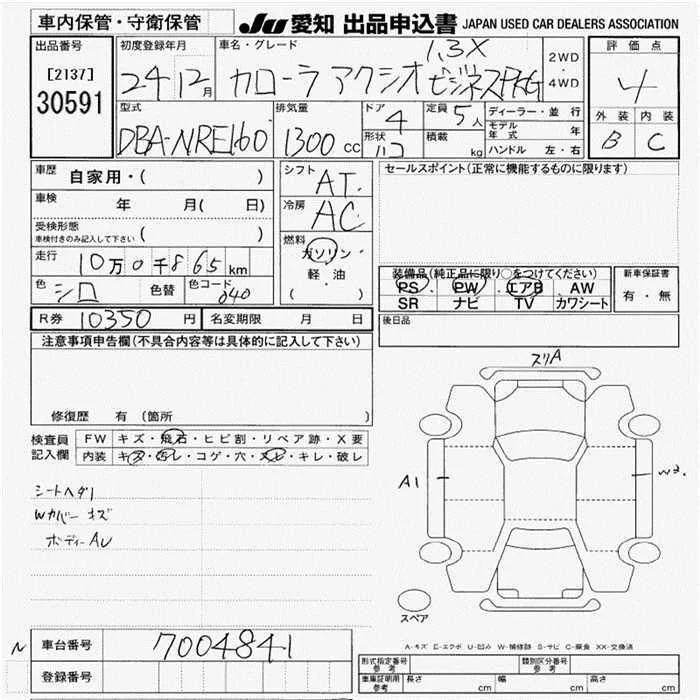 車内保管・守衛保管
JU 愛知 出品申込書 JAPAN USED CAR DEALERS ASSOCIATION
出品番号 [2137] 30591
初度登録年月 24 12月
車名・グレード カローラ アクシオ 1.3X ビジネスPKG
2WD ・ 4WD
評価点 4
外装 B 内装 C
型式 DBA-NRE160
排気量 1300 cc
ドア 4 形状 ハコ
定員 5人 積載 kg
ディーラー・並行
モデル年式 年
ハンドル 左・右
車歴 自家用・( )
車検 年 月( 日)
受検形態 車検付きのみ記入して下さい ( )
走行 10万0千865km
色 シロ 色替 色コード 040
シフト AT
冷房 AC
燃料 ガソリン・軽油 ( )
セールスポイント(正常に機能するものに限ります)
装備品(純正品に限り○をつけてください)
PS PW エアB AW
SR ナビ TV カワシート
新車保証書 有・無
R券 10350円 名変期限 月 日
後日品
注意事項申告欄(不具合内容等は具体的に記入して下さい)
修復歴 有(箇所
検査員記入欄
FW キズ・飛石・ヒビ割・リペア跡・X要
内装 キズ・汚レ・コゲ・穴・スレ・キレ・破レ
シートヘタリ
Wカバー キズ
ボディーAU
スリA
A1
W2.
スペア
A-キズ E-エクボ U-凹み W-補修跡 S-サビ C-腐食 XX-交換済
N 車台番号 7004841
登録番号
型式指定番号 参考 類別区分番号 参考
車庫証明用 参考 長さ cm 幅 cm 高さ cm